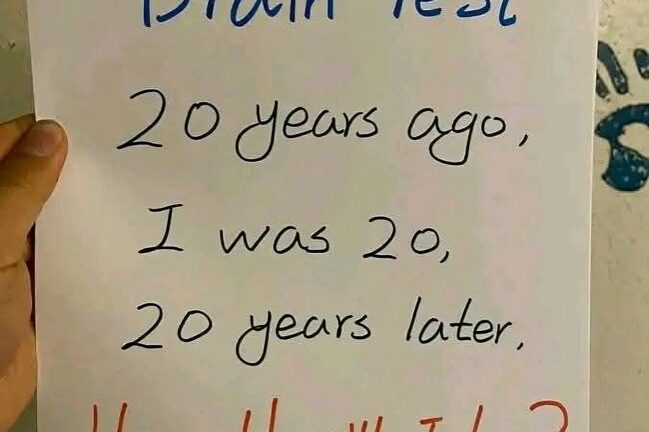 Brain Test
20 years ago,
I was 20,
20 years later,